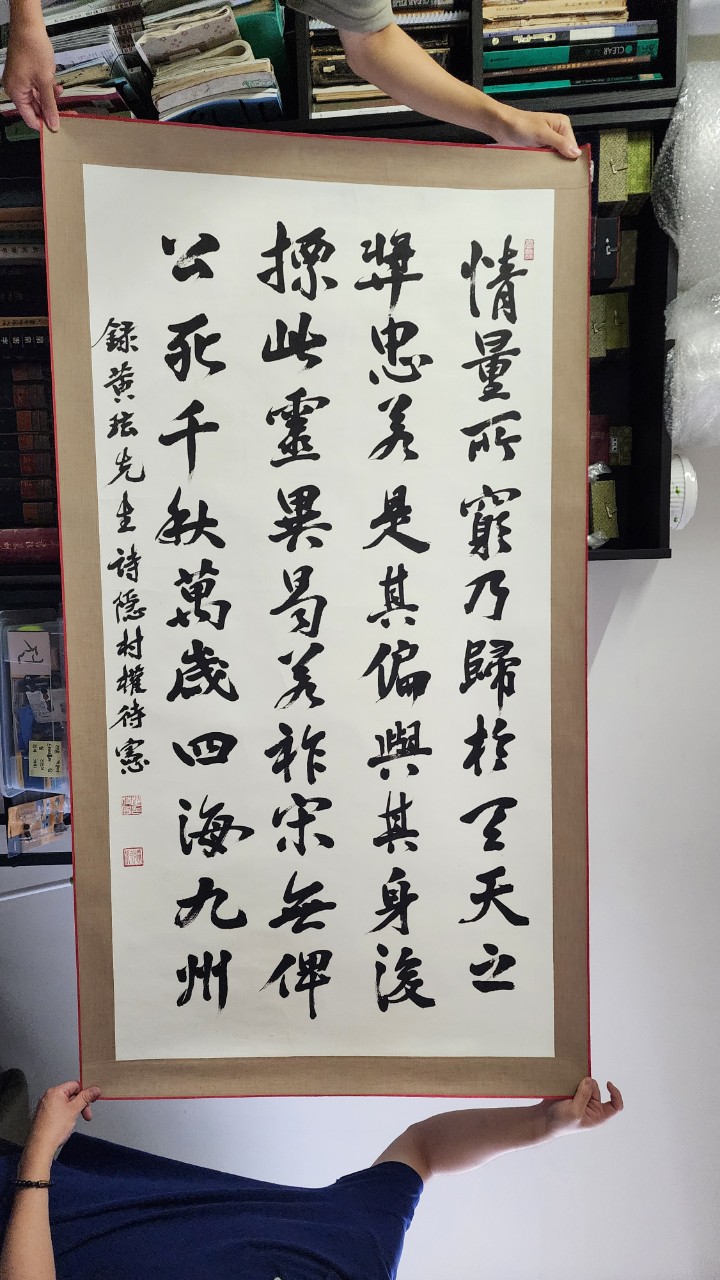 情量所窮乃歸於天天之
奬忠若是其偏與其身後
摽此靈異曷若祚宋無俾
公死千秋萬歲四海九州
録黄玹先生詩隱村權待憲